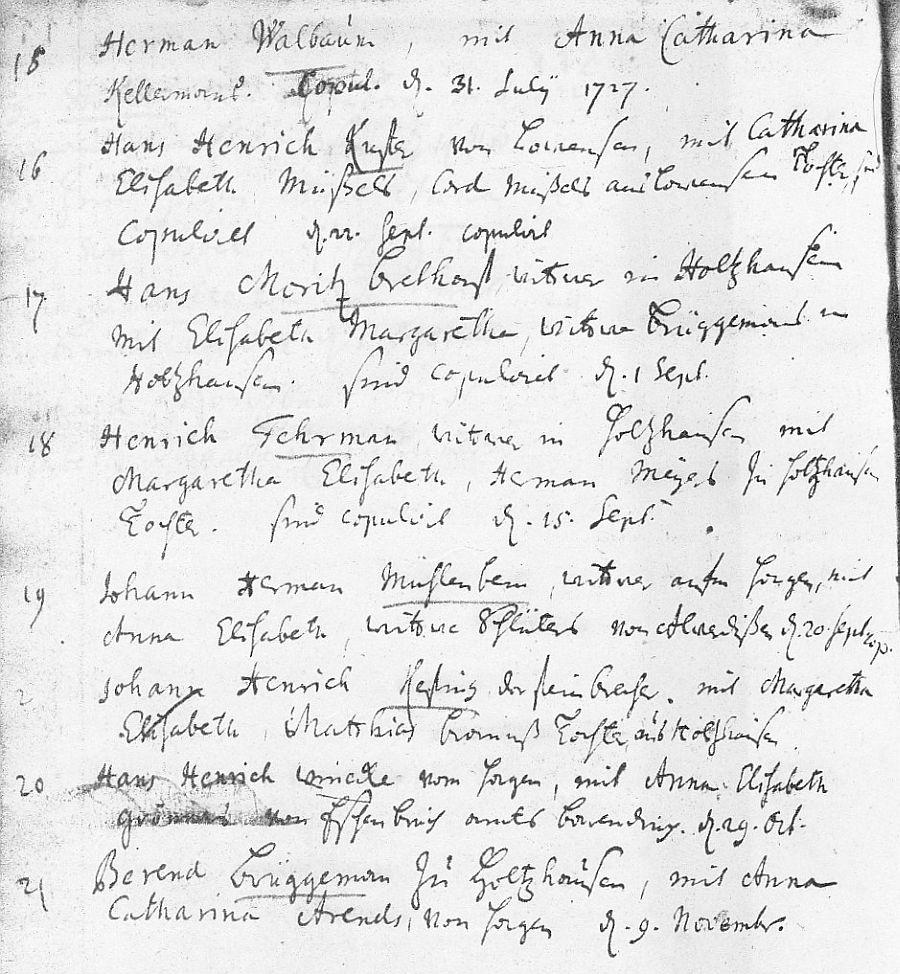 15 Herman Walbaum, mit Anna Catharina
Kellermans. Copul. d. 31. Julÿ 1727.
16 Hans Henrich Kuster von Lowensen, mit Catharina
Elisabeth Müßels, Cord Müßels aus Lowensen Tochter, sind
Copuliret d. 22. Sept. copulirt
17 Hans Moritz Brelhorst, witwer in Holtzhausen
mit Elisabeth Margaretha, witwe Brüggemans in
Holtzhausen. sind copuliret d. 1 Sept.
18 Henrich Fehrman, witwer in Holtzhausen mit
Margaretha Elisabeth, Herman Meÿers zu Holtzhausen
Tochter. sind copulirt d. 15. Sept.
19 Johann Herman Mühlenbein, witwer aufm Hagen, mit
Anna Elisabeth, witwe Schlüters von d. 20. Sept cop.
Johann Henrich der steinbrecher. mit Margaretha
Elisabeth, Matthias Tochter, aus Holtzhausen
20 Hans Henrich wincke vom Hagen, mit Anna Elisabeth
von Eschenbruch amts d. 29. Oct.
21 Berend Brüggeman zu Holtzhausen, mit Anna
Catharina Arends, von Hagen d. 9. Novembr.